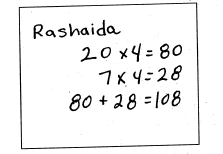 Rashaida
20 x 4 = 80
7 x 4 = 28
80 + 28 = 108